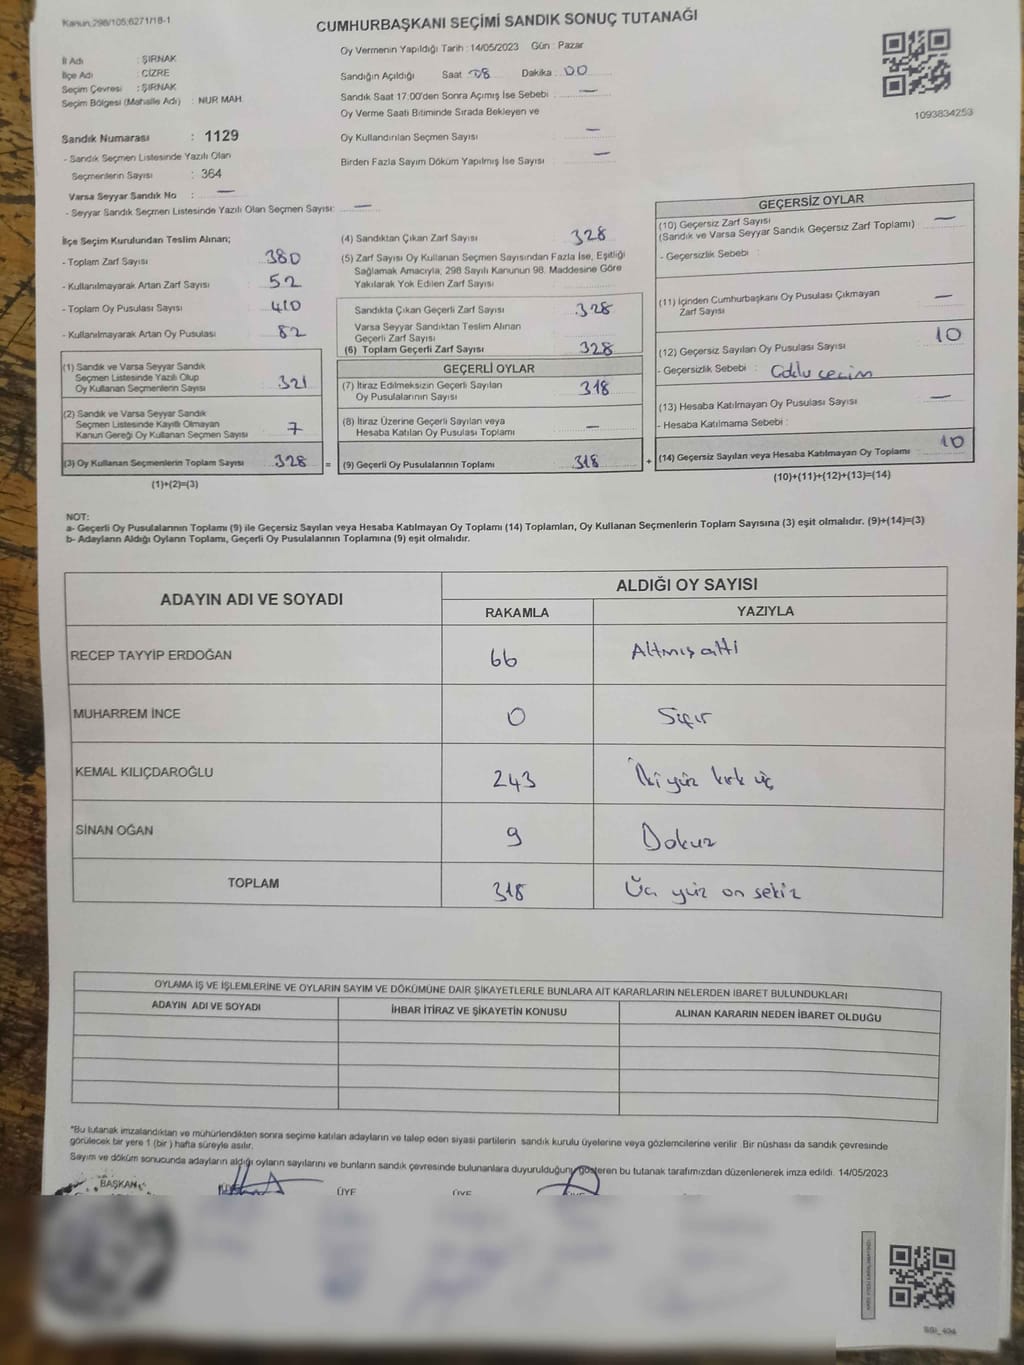 Kanun:298/105;6271/18-1
CUMHURBAŞKANI SEÇİMİ SANDIK SONUÇ TUTANAĞI
İl Adı : ŞIRNAK
İlçe Adı : CİZRE
Seçim Çevresi : ŞIRNAK
Seçim Bölgesi (Mahalle Adı) : NUR MAH.
Oy Vermenin Yapıldığı Tarih : 14/05/2023 Gün : Pazar
Sandığın Açıldığı Saat 08 Dakika 00
Sandık Saat 17:00'den Sonra Açılmış İse Sebebi —
Oy Verme Saati Bitiminde Sırada Bekleyen ve
Oy Kullandırılan Seçmen Sayısı —
Birden Fazla Sayım Döküm Yapılmış İse Sayısı —
1093834253
Sandık Numarası : 1129
- Sandık Seçmen Listesinde Yazılı Olan
Seçmenlerin Sayısı : 364
Varsa Seyyar Sandık No : —
- Seyyar Sandık Seçmen Listesinde Yazılı Olan Seçmen Sayısı: —
İlçe Seçim Kurulundan Teslim Alınan;
- Toplam Zarf Sayısı 380
- Kullanılmayarak Artan Zarf Sayısı 52
- Toplam Oy Pusulası Sayısı 410
- Kullanılmayarak Artan Oy Pusulası 82
(1) Sandık ve Varsa Seyyar Sandık
Seçmen Listesinde Yazılı Olup
Oy Kullanan Seçmenlerin Sayısı 321
(2) Sandık ve Varsa Seyyar Sandık
Seçmen Listesinde Kayıtlı Olmayan
Kanun Gereği Oy Kullanan Seçmen Sayısı 7
(3) Oy Kullanan Seçmenlerin Toplam Sayısı 328 =
(1)+(2)=(3)
(4) Sandıktan Çıkan Zarf Sayısı 328
(5) Zarf Sayısı Oy Kullanan Seçmen Sayısından Fazla İse, Eşitliği
Sağlamak Amacıyla, 298 Sayılı Kanunun 98. Maddesine Göre
Yakılarak Yok Edilen Zarf Sayısı
Sandıkta Çıkan Geçerli Zarf Sayısı 328
Varsa Seyyar Sandıktan Teslim Alınan
Geçerli Zarf Sayısı
(6) Toplam Geçerli Zarf Sayısı 328
GEÇERLİ OYLAR
(7) İtiraz Edilmeksizin Geçerli Sayılan
Oy Pusulalarının Sayısı 318
(8) İtiraz Üzerine Geçerli Sayılan veya
Hesaba Katılan Oy Pusulası Toplamı —
(9) Geçerli Oy Pusulalarının Toplamı 318 +
GEÇERSİZ OYLAR
(10) Geçersiz Zarf Sayısı —
(Sandık ve Varsa Seyyar Sandık Geçersiz Zarf Toplamı)
- Geçersizlik Sebebi :
(11) İçinden Cumhurbaşkanı Oy Pusulası Çıkmayan
Zarf Sayısı —
(12) Geçersiz Sayılan Oy Pusulası Sayısı 10
- Geçersizlik Sebebi :
(13) Hesaba Katılmayan Oy Pusulası Sayısı —
- Hesaba Katılmama Sebebi :
(14) Geçersiz Sayılan veya Hesaba Katılmayan Oy Toplamı 10
(10)+(11)+(12)+(13)=(14)
NOT:
a- Geçerli Oy Pusulalarının Toplamı (9) ile Geçersiz Sayılan veya Hesaba Katılmayan Oy Toplamı (14) Toplamları, Oy Kullanan Seçmenlerin Toplam Sayısına (3) eşit olmalıdır. (9)+(14)=(3)
b- Adayların Aldığı Oyların Toplamı, Geçerli Oy Pusulalarının Toplamına (9) eşit olmalıdır.
ADAYIN ADI VE SOYADI
ALDIĞI OY SAYISI
RAKAMLA YAZIYLA
RECEP TAYYİP ERDOĞAN 66 Altmış altı
MUHARREM İNCE 0 Sıfır
KEMAL KILIÇDAROĞLU 243 İki yüz kırk üç
SİNAN OĞAN 9 Dokuz
TOPLAM 318 Üç yüz on sekiz
OYLAMA İŞ VE İŞLEMLERİNE VE OYLARIN SAYIM VE DÖKÜMÜNE DAİR ŞİKAYETLERLE BUNLARA AİT KARARLARIN NELERDEN İBARET BULUNDUKLARI
ADAYIN ADI VE SOYADI İHBAR İTİRAZ VE ŞİKAYETİN KONUSU ALINAN KARARIN NEDEN İBARET OLDUĞU
*Bu tutanak imzalandıktan ve mühürlendikten sonra seçime katılan adayların ve talep eden siyasi partilerin sandık kurulu üyelerine veya gözlemcilerine verilir. Bir nüshası da sandık çevresinde
görülecek bir yere 1 (bir) hafta süreyle asılır.
Sayım ve döküm sonucunda adayların aldığı oyların sayılarını ve bunların sandık çevresinde bulunanlara duyurulduğunu gösteren bu tutanak tarafımızdan düzenlenerek imza edildi. 14/05/2023
BAŞKAN ÜYE ÜYE ÜYE